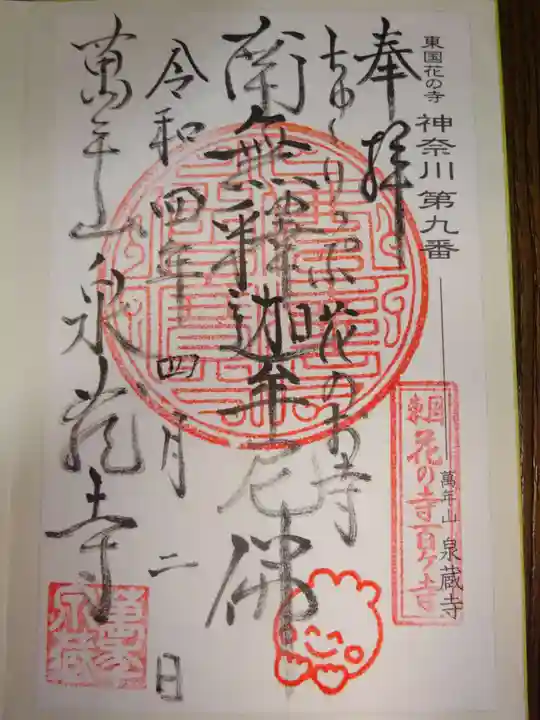 東国花の寺 神奈川第九番
萬年山 泉蔵寺
東国花の寺百ケ寺
奉拝
花のお寺
南無釋迦牟尼佛
令和四年四月二日
萬年山泉蔵寺